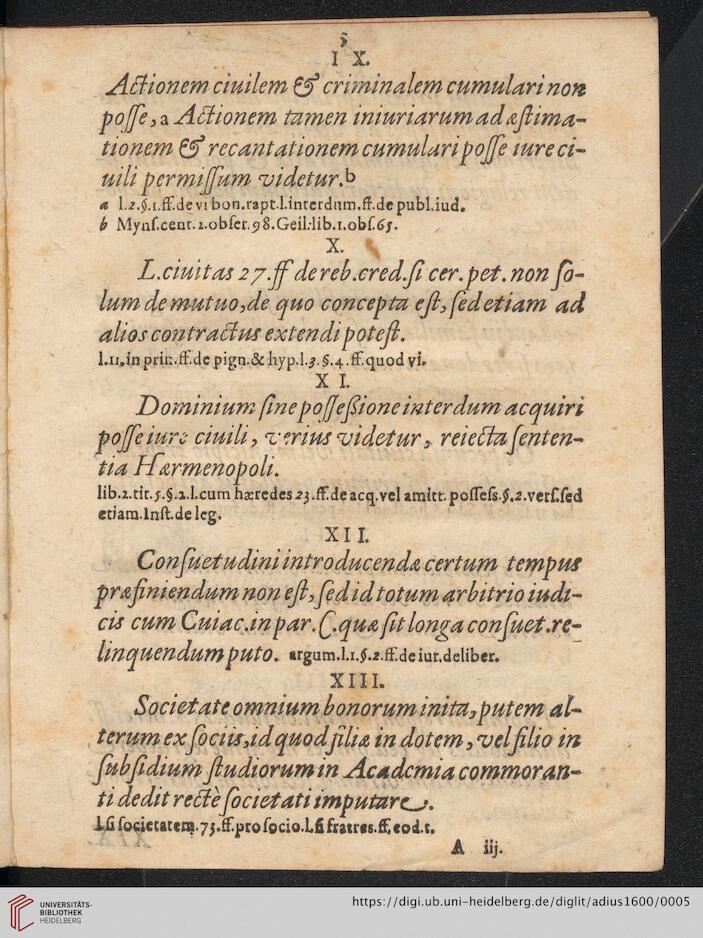 5
I X.
Actionem ciuilem & criminalem cumulari non
posse, a Actionem tamen iniuriarum ad æstima-
tionem & recantationem cumulari posse iure ci-
uili permissum videtur.b
a l.2.§.1.ff.de vi bon.rapt.l.interdum.ff.de publ.iud.
b Mynſ.cent.2.obſer.98.Geil:lib.1.obſ.65.
X.
L.ciuitas 27.ff de reb.cred.ſi cer.pet.non ſo-
lum de mutuo, de quo concepta eſt, ſed etiam ad
alios contractus extendi poteſt.
l.11.in prin.ff.de pign.& hyp.l.3.§.4.ff.quod vi.
X I.
Dominium ſine poſſeßione interdum acquiri
poſſe iure ciuili, verius videtur, reiecta ſenten-
tia Hærmenopoli.
lib.2.tit.5.§.2.l.cum hæredes 23.ff.de acq.vel amitt.poſſeſs.§.2.verſ.ſed
etiam.Inſt.de leg.
XII.
Conſuetudini introducendæ certum tempus
præfiniendum non eſt, ſed id totum arbitrio iudi-
cis cum Cuiac.in par.C.quæ ſit longa conſuet.re-
linquendum puto. argum.l.1.§.2.ff.de iur.deliber.
XIII.
Societate omnium bonorum inita, putem al-
terum ex ſociis, id quod filiæ in dotem, vel filio in
ſubſidium ſtudiorum in Academia commoran-
ti dedit rectè ſocietati imputare.
l.ſi ſocietatem.73.ff.pro ſocio.l.ſi fratres.ff.eod.t.
A iij.
UNIVERSITÄTS-
BIBLIOTHEK
HEIDELBERG
https://digi.ub.uni-heidelberg.de/diglit/adius1600/0005